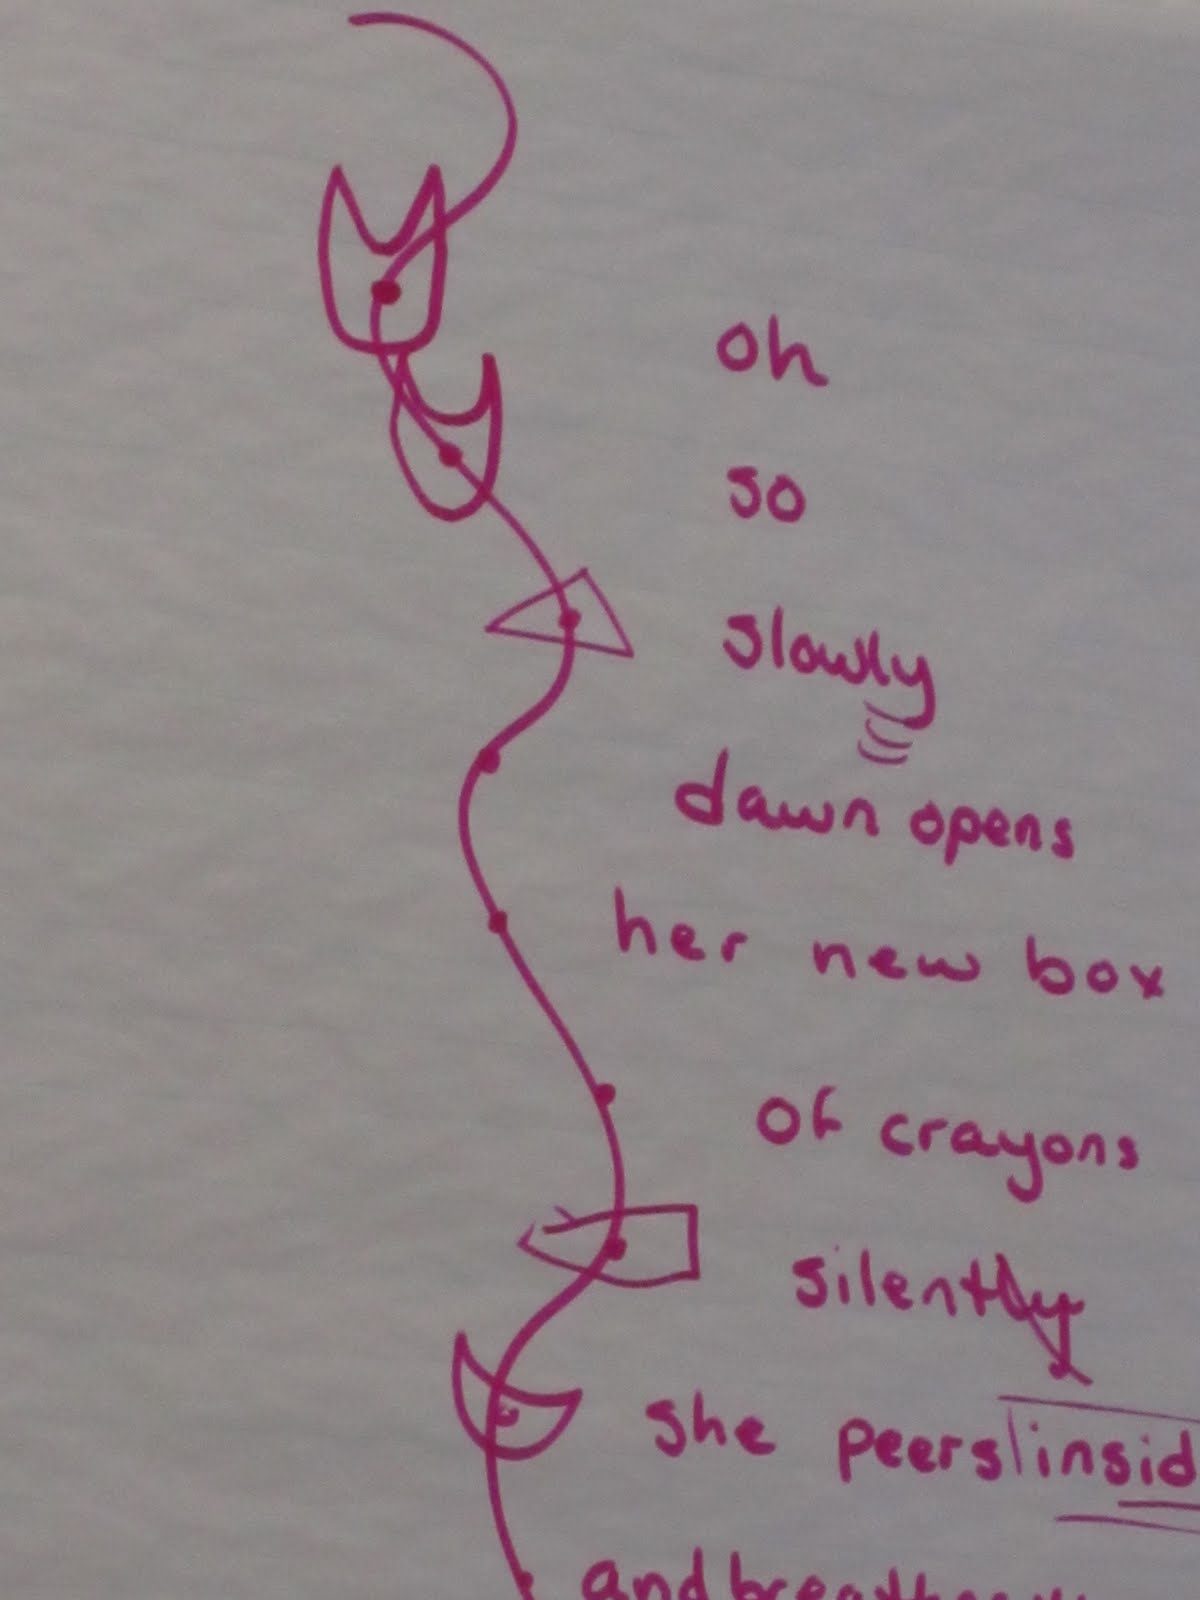 oh
so
slowly
dawn opens
her new box
of crayons
silently
she peers insid
and